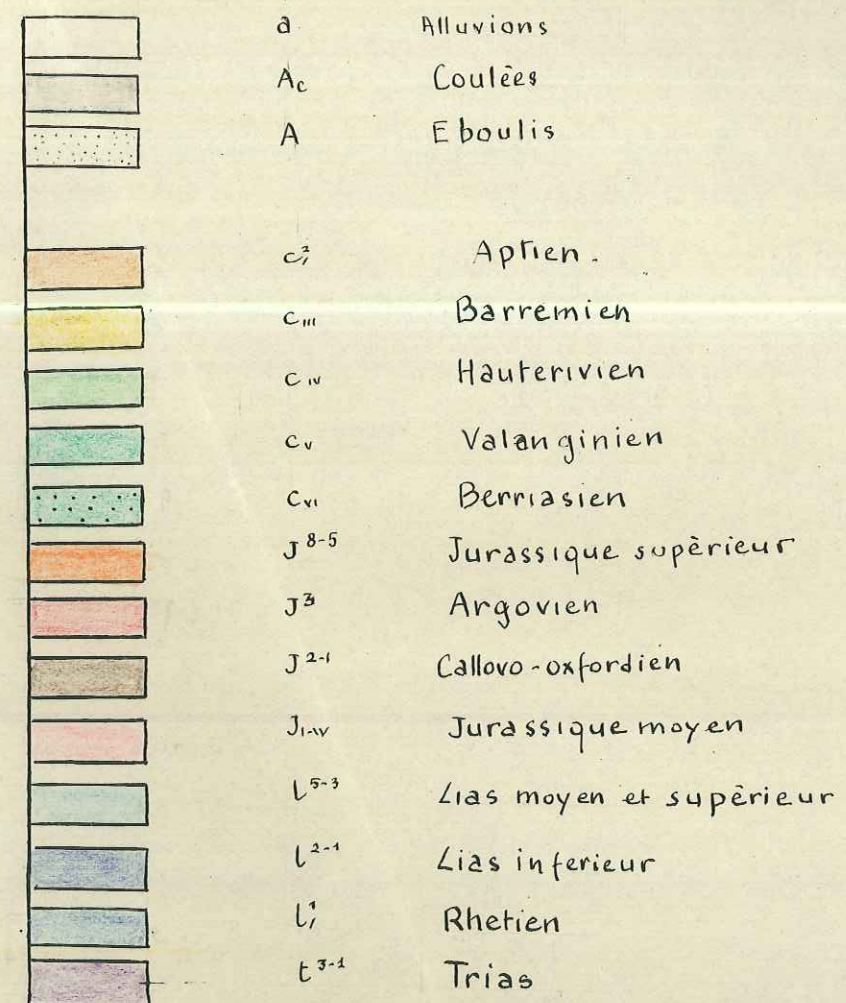 a Alluvions
Ac Coulèes
A Eboulis
c², Aptien.
C₁₁₁ Barremien
C ıv Hauterivien
Cv Valanginien
Cvı Berriasien
J 8-5 Jurassique supèrieur
J3 Argovien
J 2-1 Callovo-oxfordien
J₁-ıv Jurassique moyen
l 5-3 Lias moyen et supèrieur
l 2-1 Lias inferieur
l¹, Rhetien
t 3-1 Trias